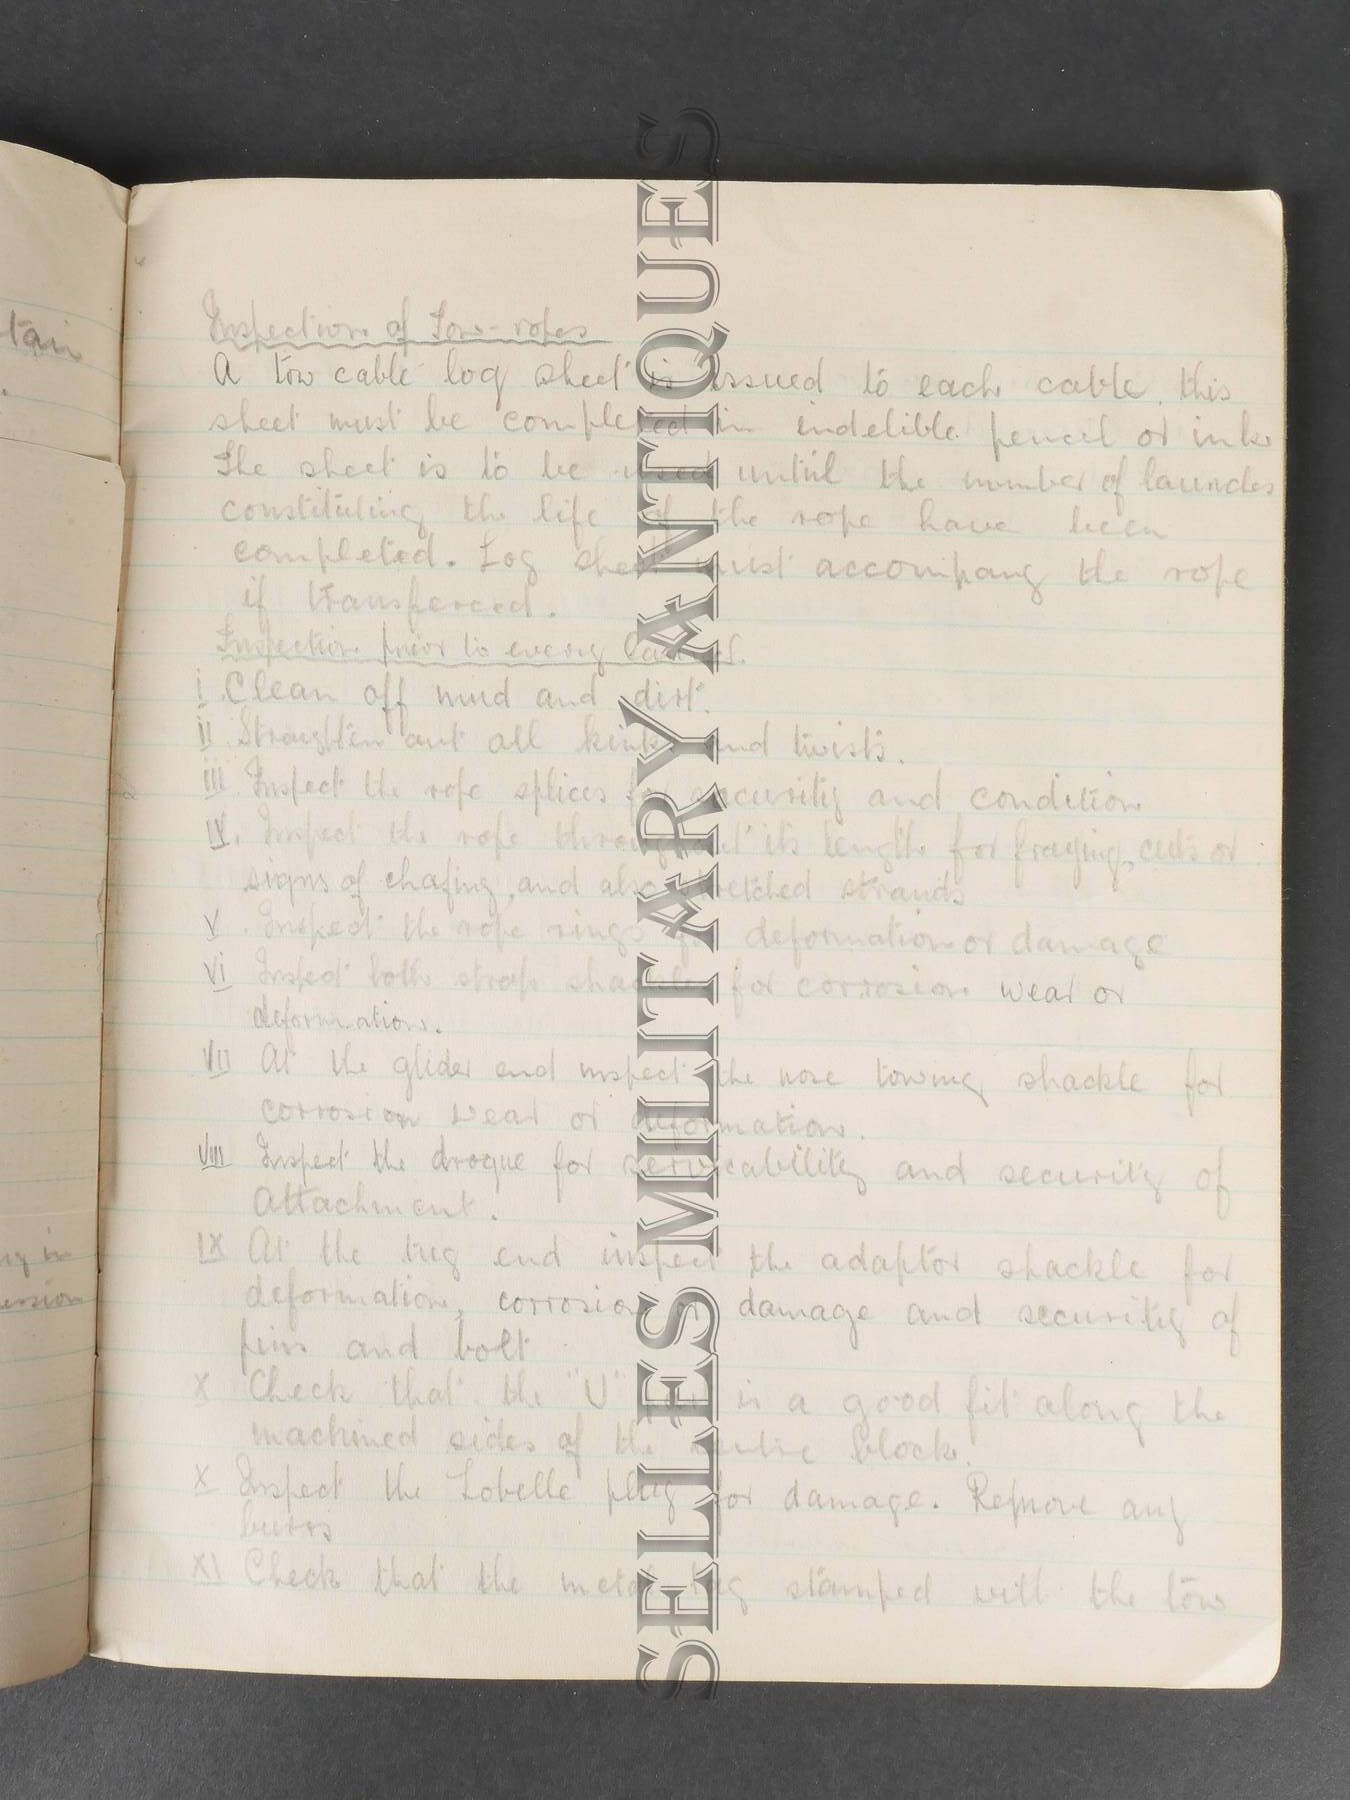 Inspection of Tow-ropes
A tow cable log sheet is issued to each cable, this
sheet must be completed in indelible pencil or ink
The sheet is to be used until the number of launches
constituting the life of the rope have been
completed. Log sheet must accompany the rope
if transferred.
Inspection prior to every
i Clean off mud and dirt.
ii Straighten out all kinks and twists.
iii Inspect the rope splices for security and condition
IV. Inspect the rope throughout its length for fraying, cuts or
signs of chafing, and also stretched strands
V. Inspect the rope rings for deformation or damage
Vi Inspect both strop shackles for corrosion wear or
deformation.
VII At the glider end inspect the nose towing shackle for
corrosion wear or deformation.
VIII Inspect the drogue for serviceability and security of
attachment.
IX At the tug end inspect the adaptor shackle for
deformation, corrosion or damage and security of
pin and bolt
X Check that the "U" is a good fit along the
machined sides of the block.
X Inspect the Lobelle plug for damage. Remove any
burrs
XI Check that the metal tag stamped with the tow
tain
ng in
ession
SELLES MILITARY ANTIQUES